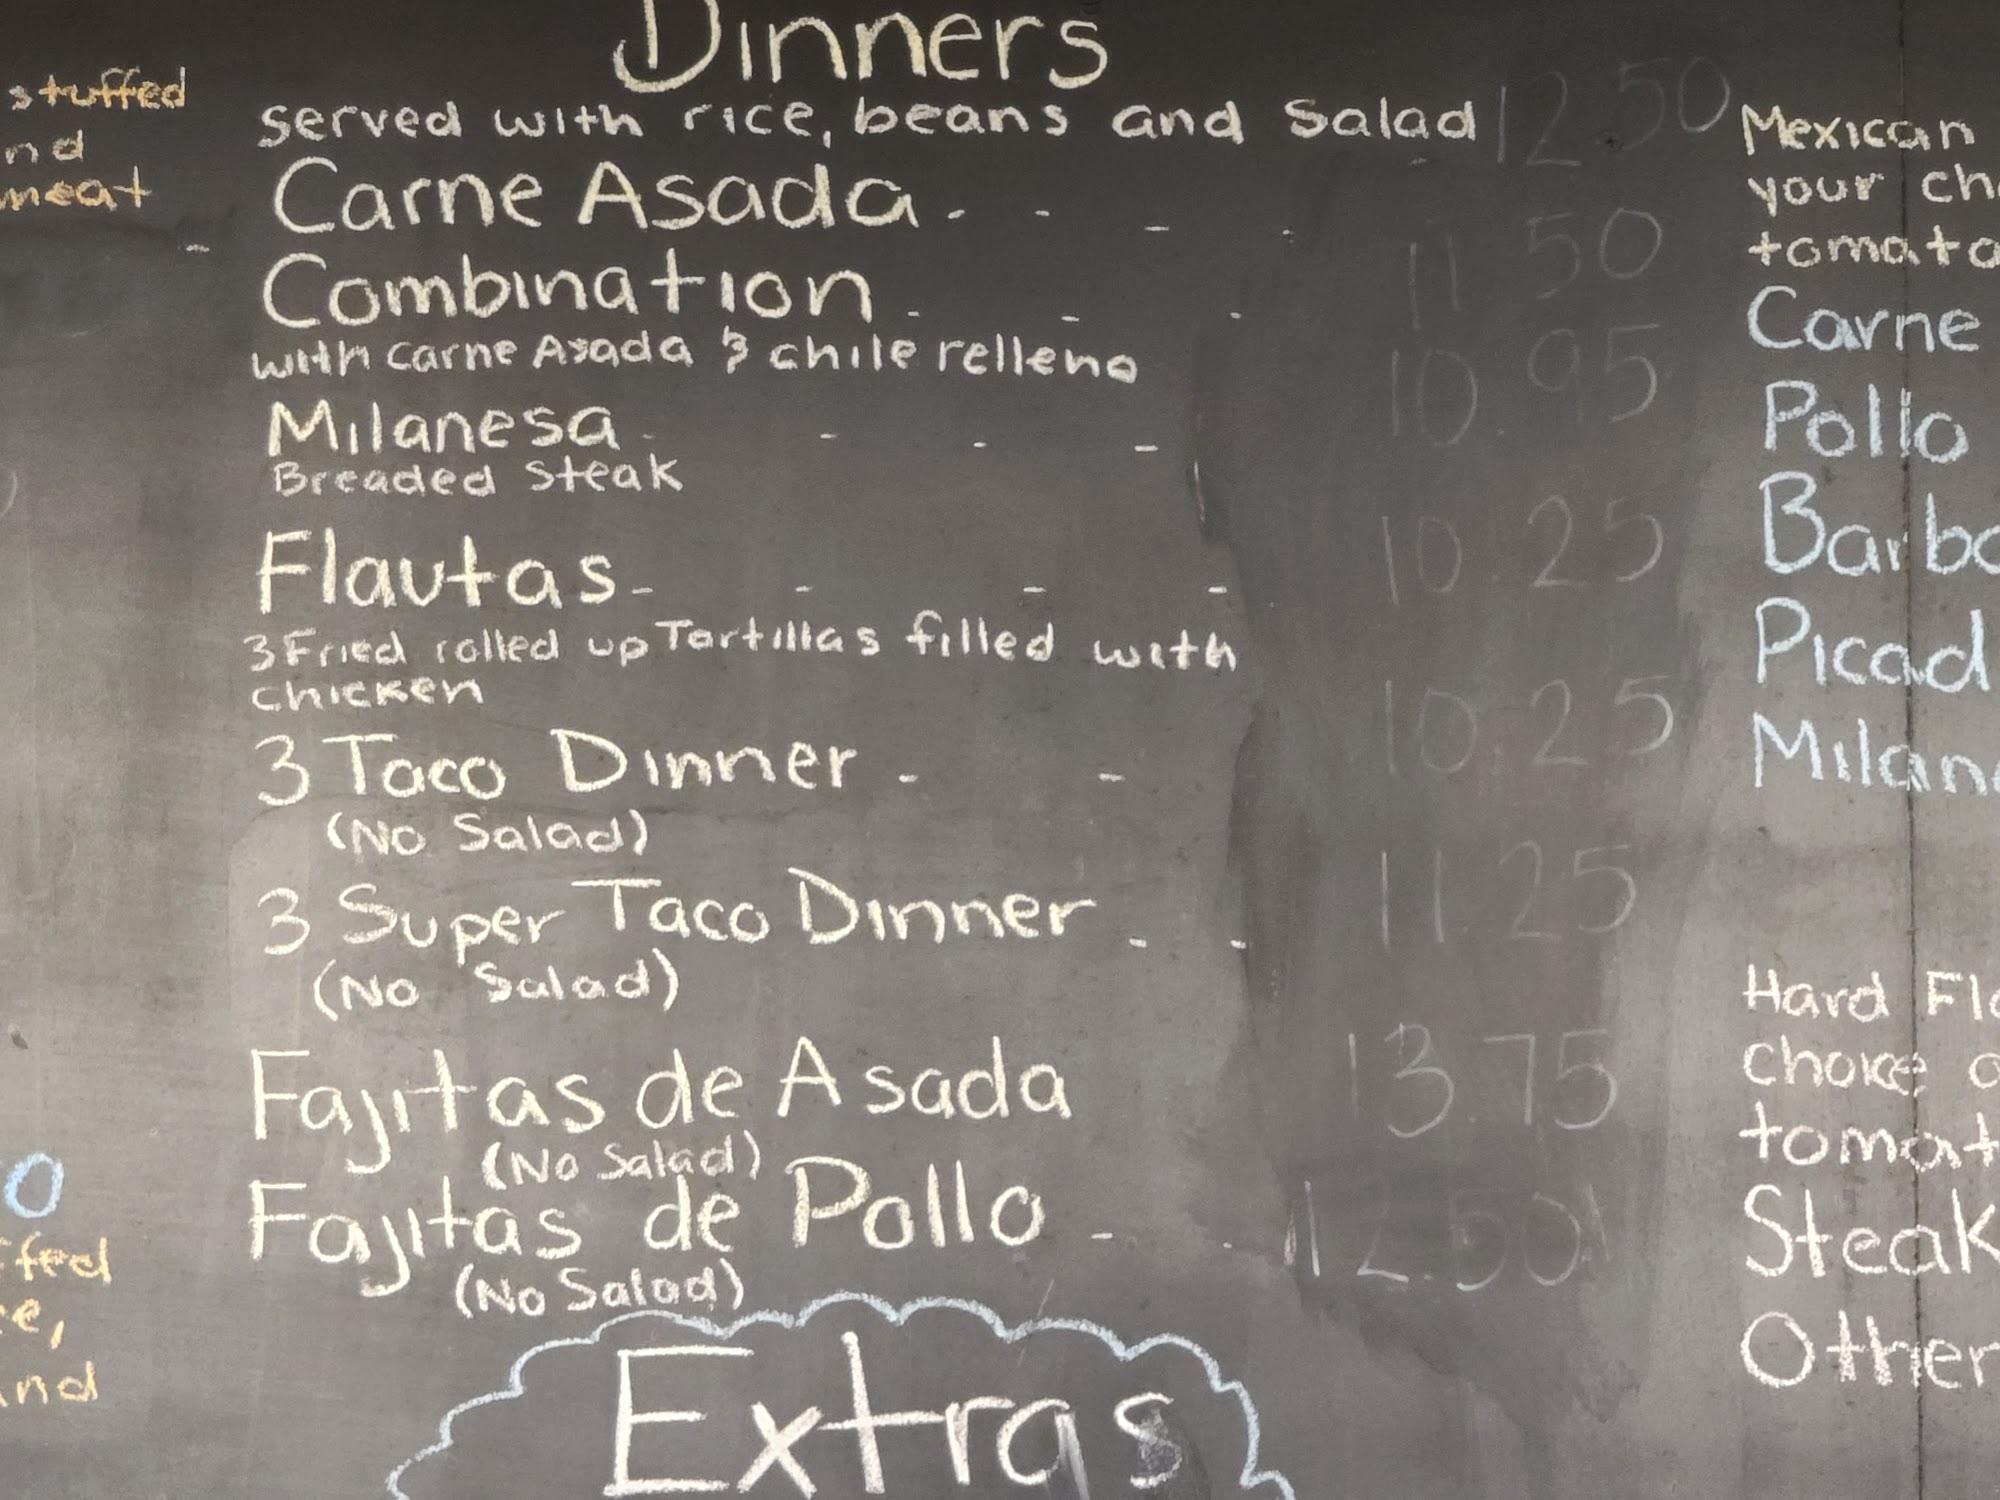 stuffed
nd
meat
Dinners
served with rice, beans and Salad 12.50
Carne Asada - - - -
11.50
Combination - - -
with Carne Asada & chile relleno
10.95
Milanesa - - - -
Breaded Steak
10.25
Flautas - - - -
3 Fried rolled up Tortillas filled with
chicken
10.25
3 Taco Dinner - -
(No Salad)
11.25
3 Super Taco Dinner - -
(No Salad)
Fajitas de Asada 13.75
(No Salad)
Fajitas de Pollo - - 12.50
(No Salad)
Extras
o
ffed
e,
and
Mexican
your ch
tomato
Carne
Pollo
Barba
Picad
Milane
Hard Flo
choice o
tomat
Steak
Other